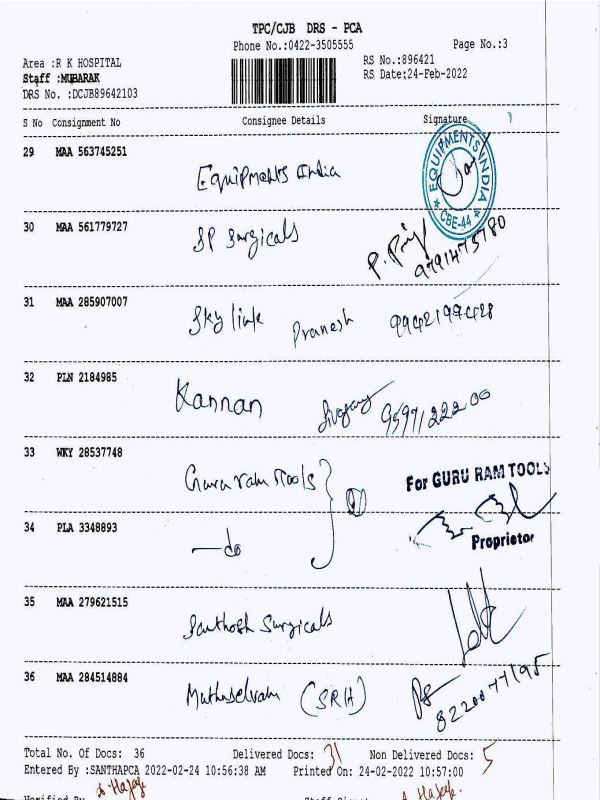 TPC/CJB DRS - PCA
Phone No.:0422-3505555
Page No.:3
Area :R K HOSPITAL
RS No.:896421
Staff :MUBARAK
RS Date:24-Feb-2022
DRS No. :DCJB89642103
S No Consignment No Consignee Details Signature
29 MAA 563745251
Equipments India
EQUIPMENTS INDIA
★ CBE-44 ★
30 MAA 561779727
SP Surgicals
P. Priy
9791473780
31 MAA 285907007
Sky link Pranesh 9942199428
32 PLN 2184985
Kannan
9597122200
33 WKY 28537748
Guru ram Tools
For GURU RAM TOOLS
34 PLA 3348893
—do
Proprietor
35 MAA 279621515
Santhosh Surgicals
36 MAA 284514884
Muthuselvam (SRH)
8220077195
Total No. Of Docs: 36 Delivered Docs: 31 Non Delivered Docs: 5
Entered By :SANTHAPCA 2022-02-24 10:56:38 AM Printed On: 24-02-2022 10:57:00